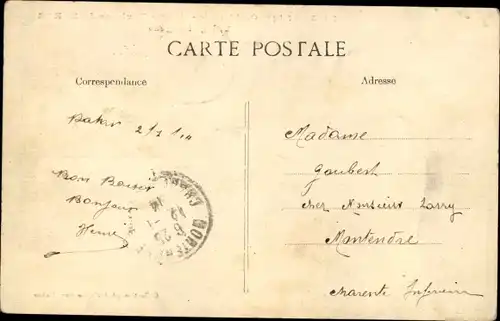 CARTE POSTALE
Correspondance
Adresse
Dakar 2/1 14
Bon Baiser
Bonjour
Madame
Goubert
chez Monsieur Larry
Montendre
Charente Inférieure